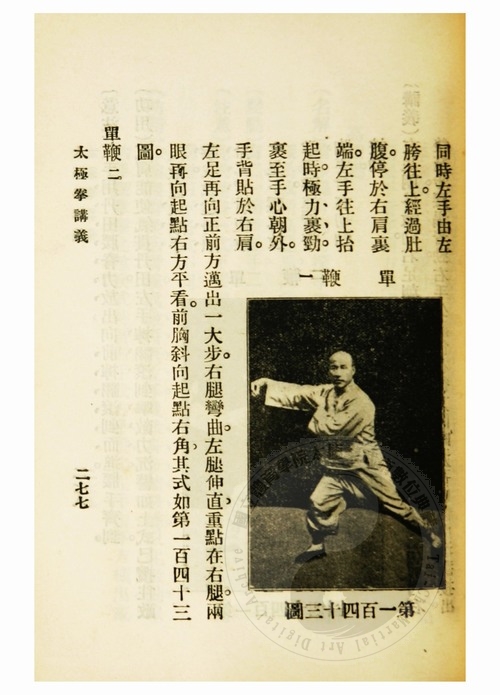 同時左手由左
胯往上經過肚
腹。停於右肩裏
端。左手往上抬
起時。極力裹勁、
裹至手心朝外。
手背貼於右肩。
左足再向正前方邁出一大步。右腿彎曲。左腿伸直。重點在右腿。兩
眼再向起點右方平看。前胸斜向起點右角。其式如第一百四十三
圖。
單鞭二
太極拳講義
二七七
單鞭一
第一百四十三圖